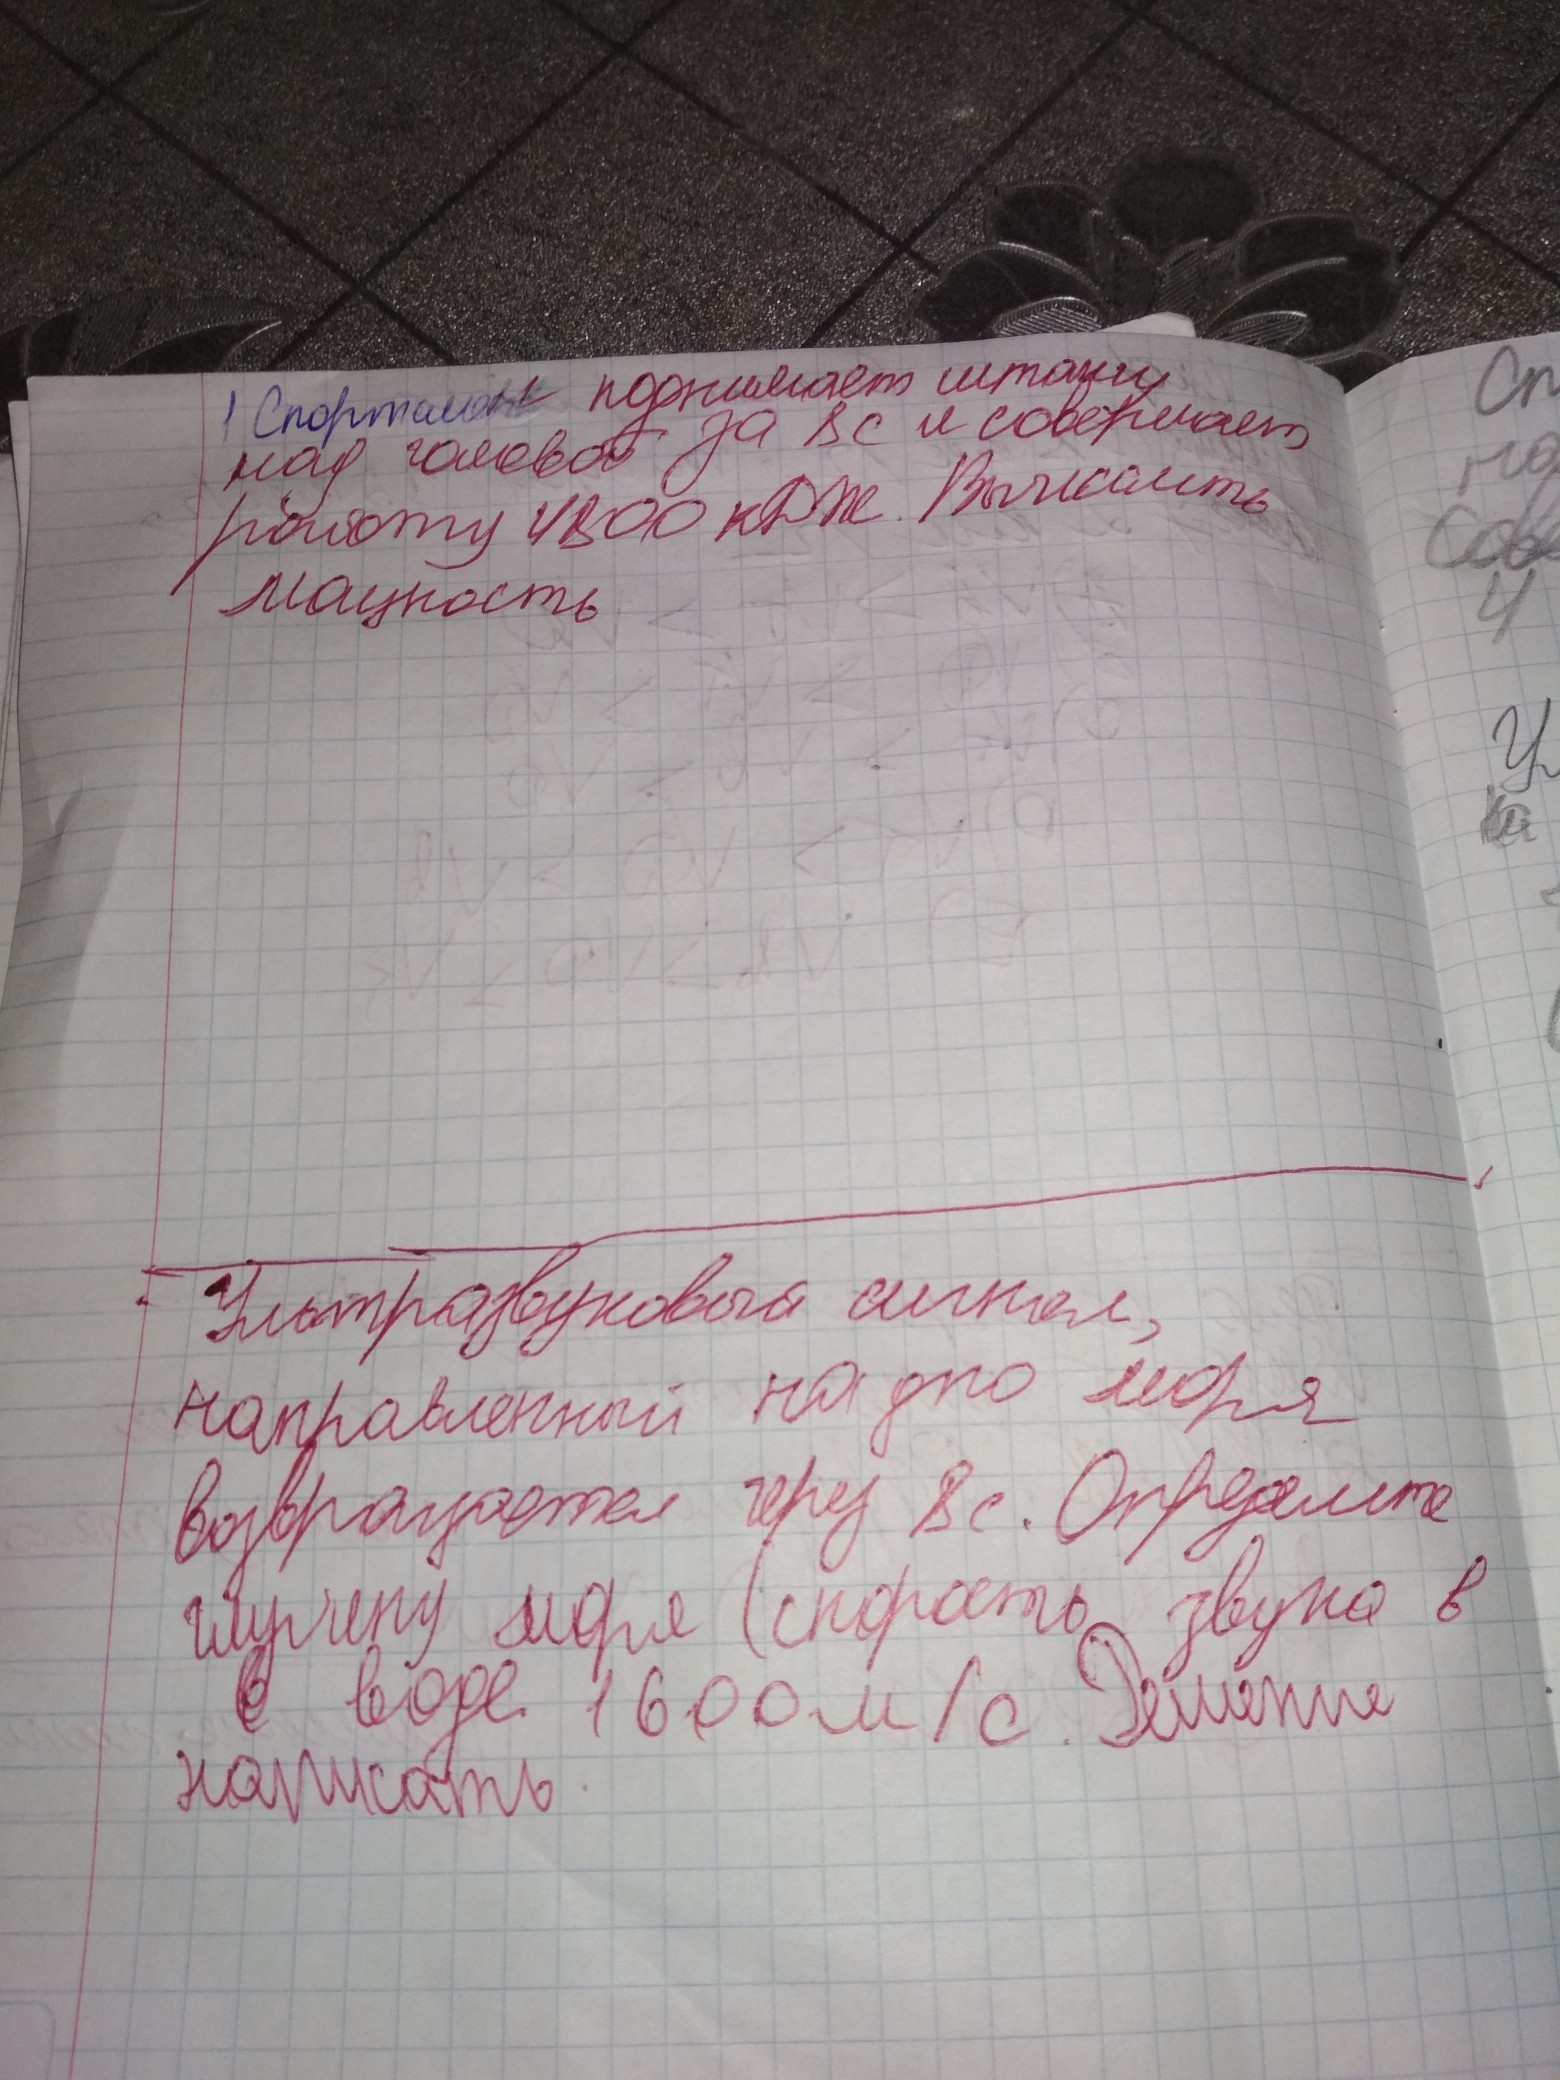 1 Спортсмен поднимает штангу
над головой за 8 с и совершает
работу 4800 кДж. Вычислить
мощность
Ультразвуковый сигнал,
направленный на дно моря
возвращается через 8 с. Определите
глубину моря (скорость звука в
в воде 1600 м/с. Решение
написать
Сп
на
Сове
4
У